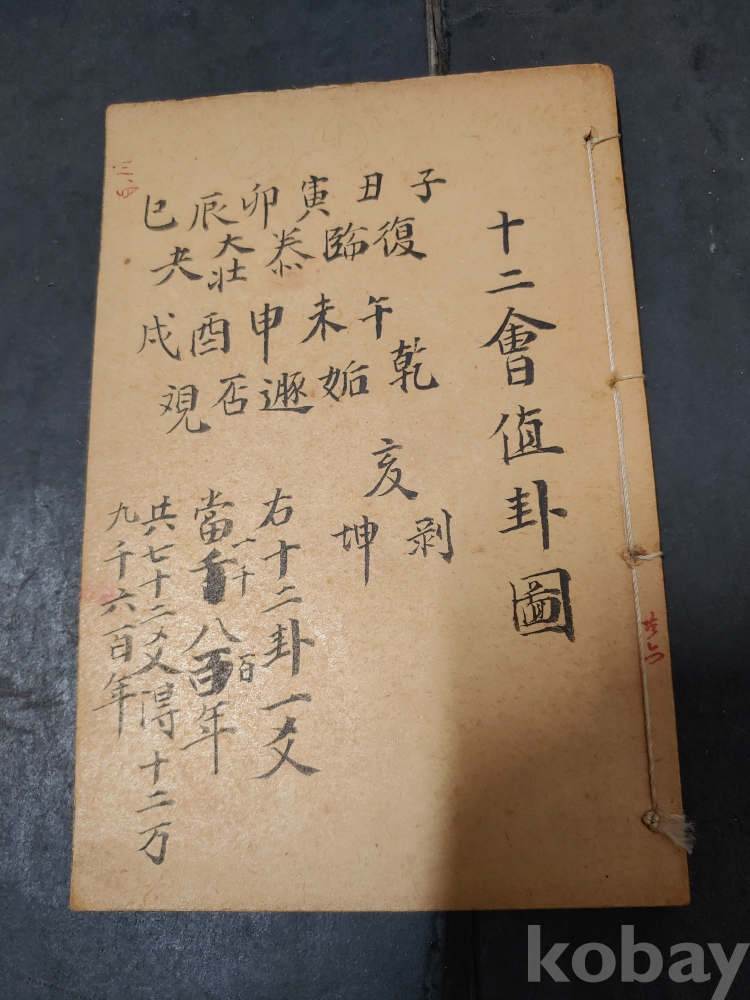 十二會值卦圖
子丑寅卯辰巳
復臨泰大壯夬
午未申酉戌
乾姤遯否觀
亥
剥坤
右十二卦一爻
當千八百年
一千 百
共七十二爻得十二万
九千六百年
kobay